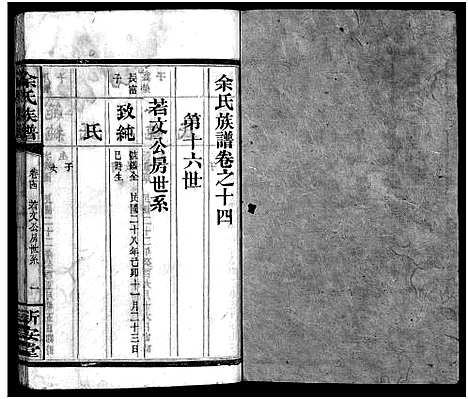 余氏族譜卷之十四
第十六世
若文公房世系
長富
子
致純
號鑑全 民國二十八年己卯十一月二十三日
巳時生
氏
子
女
余氏族譜
卷十四 若文公房世系 一
新安堂